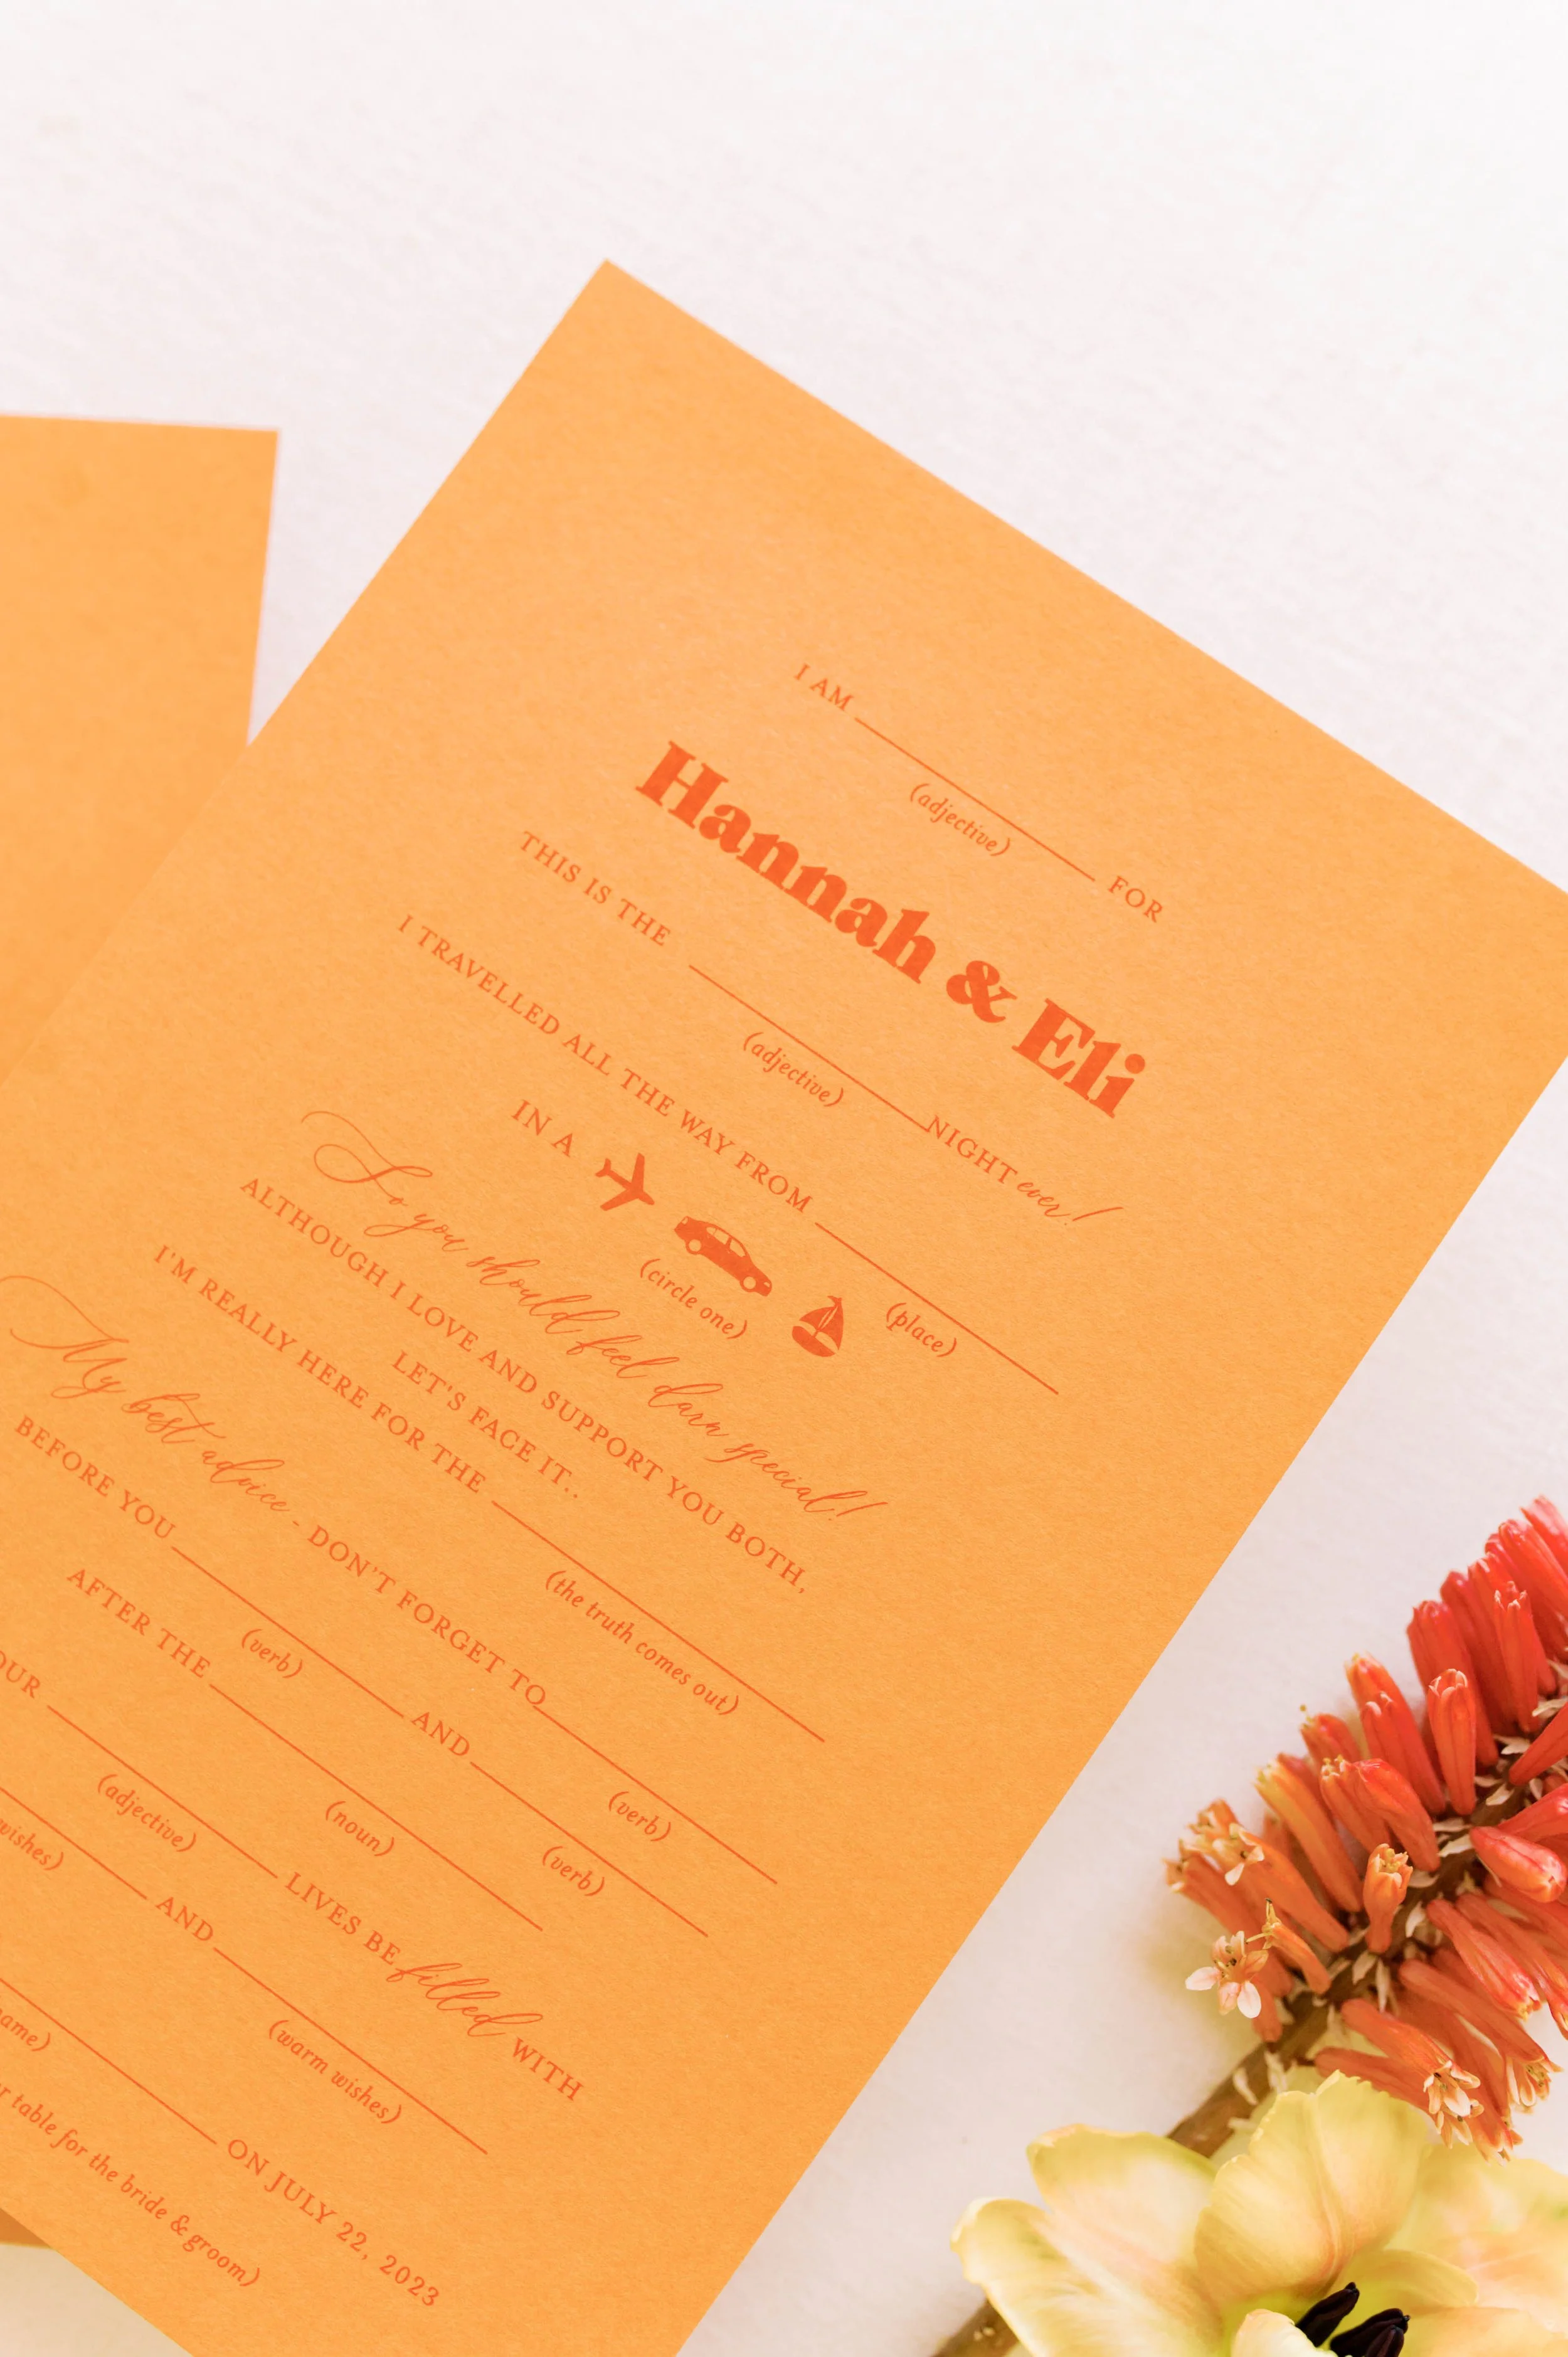 I AM ____ FOR
(adjective)
Hannah & Eli
THIS IS THE ____ NIGHT ever!
(adjective)
I TRAVELLED ALL THE WAY FROM ____
(place)
IN A
(circle one)
So you should feel darn special!
ALTHOUGH I LOVE AND SUPPORT YOU BOTH,
LET'S FACE IT..
I'M REALLY HERE FOR THE ____
(the truth comes out)
My best advice - DON'T FORGET TO ____
(verb)
BEFORE YOU ____ AND ____
(verb) (verb)
AFTER THE ____
(noun)
____ LIVES BE filled WITH
(adjective)
____ AND ____
wishes) (warm wishes)
____ ON JULY 22, 2023
table for the bride & groom)